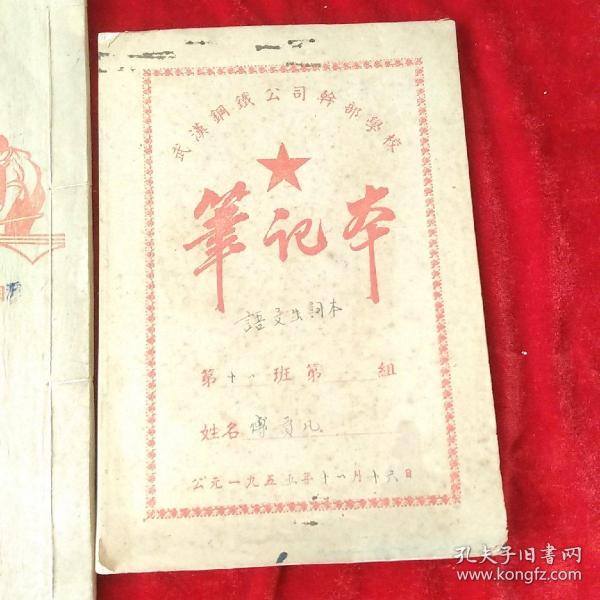 武漢鋼鐵公司幹部學校
筆記本
語文生詞本
第十一班第 組
姓名 傅
公元一九五五年十一月十六日
孔夫子旧書网
www.kongfz.com